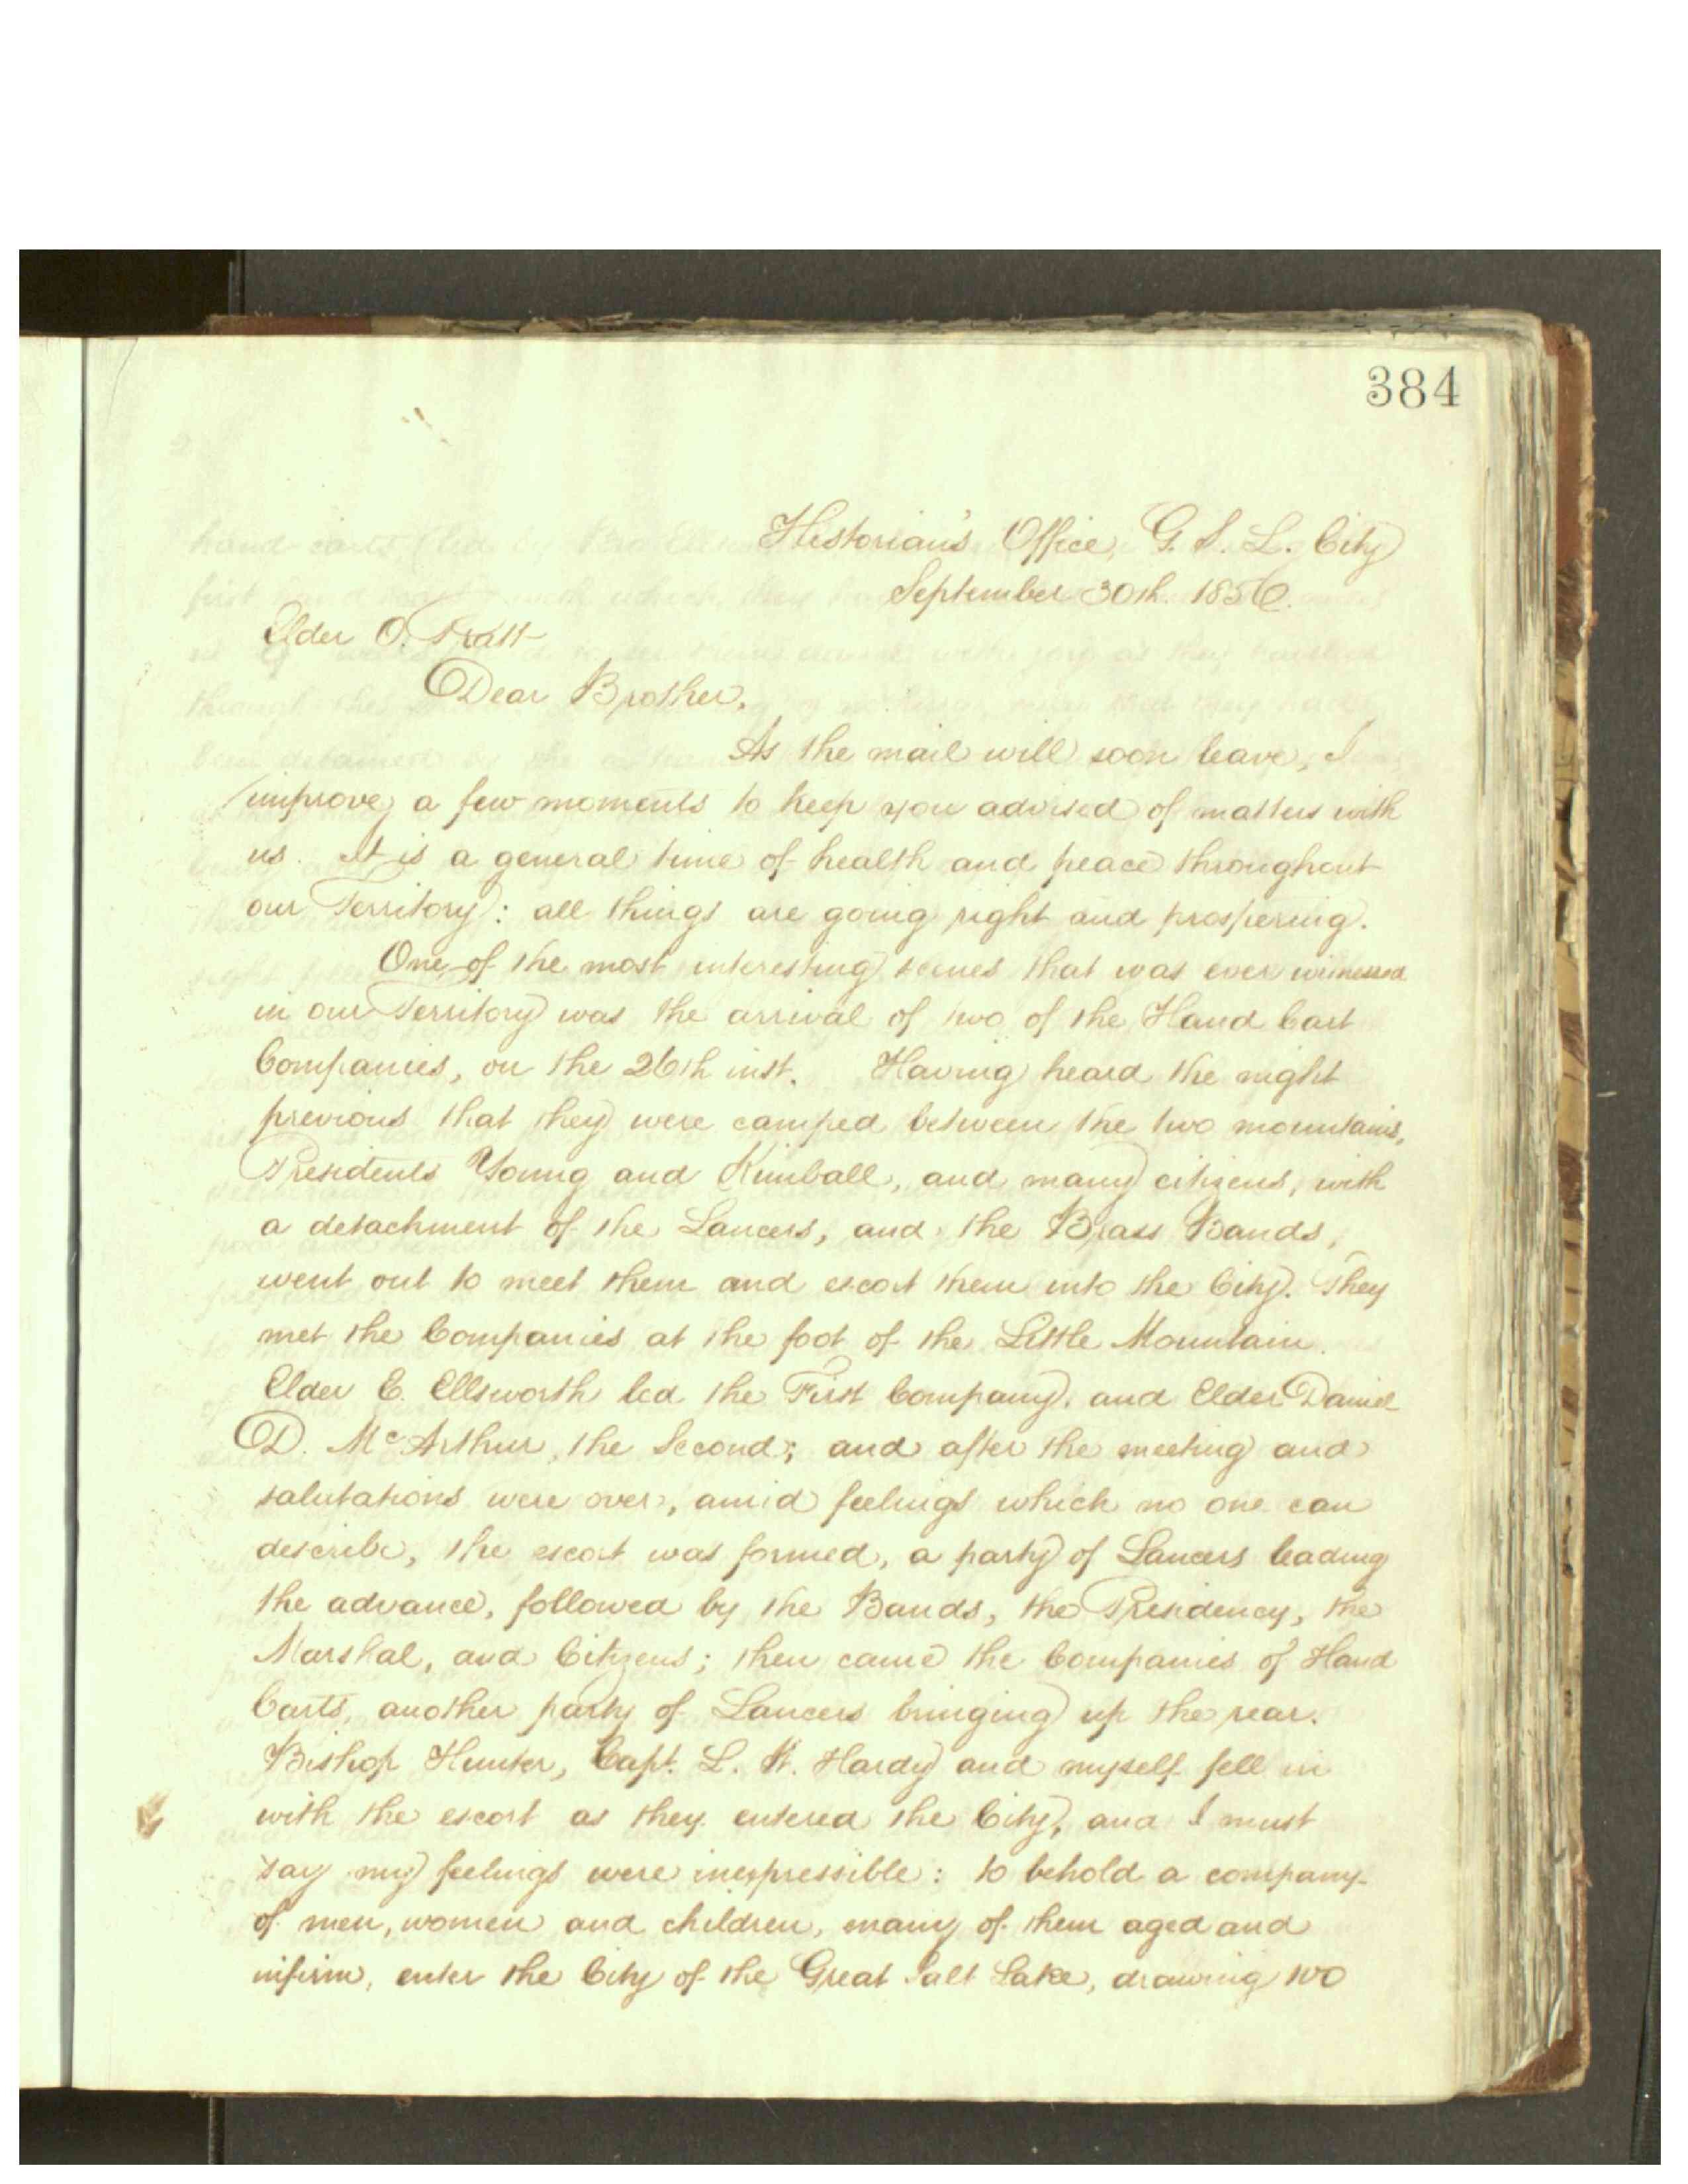 384
Historian's Office, G. S. L. City
September 30th. 1856.
Elder O. Pratt
Dear Brother,
As the mail will soon leave, I
improve a few moments to keep you advised of matters with
us. It is a general time of health and peace throughout
our Territory: all things are going right and prospering.
One of the most interesting scenes that was ever witnessed
in our Territory was the arrival of two of the Hand Cart
Companies, on the 26th inst. Having heard the night
previous that they were camped between the two mountains,
Presidents Young and Kimball, and many citizens, with
a detachment of the Lancers, and the Brass Bands,
went out to meet them and escort them into the City. They
met the Companies at the foot of the Little Mountain.
Elder E. Ellsworth led the First Company, and Elder Daniel
D. McArthur, the Second; and after the meeting and
salutations were over, amid feelings which no one can
describe, the escort was formed, a party of Lancers leading
the advance, followed by the Bands, the Presidency, the
Marshal, and Citizens; then came the Companies of Hand
Carts, another party of Lancers bringing up the rear.
Bishop Hunter, Capt. L. W. Hardy and myself fell in
with the escort as they entered the City, and I must
say my feelings were inexpressible: to behold a company
of men, women and children, many of them aged and
infirm, enter the City of the Great Salt Lake, drawing 100